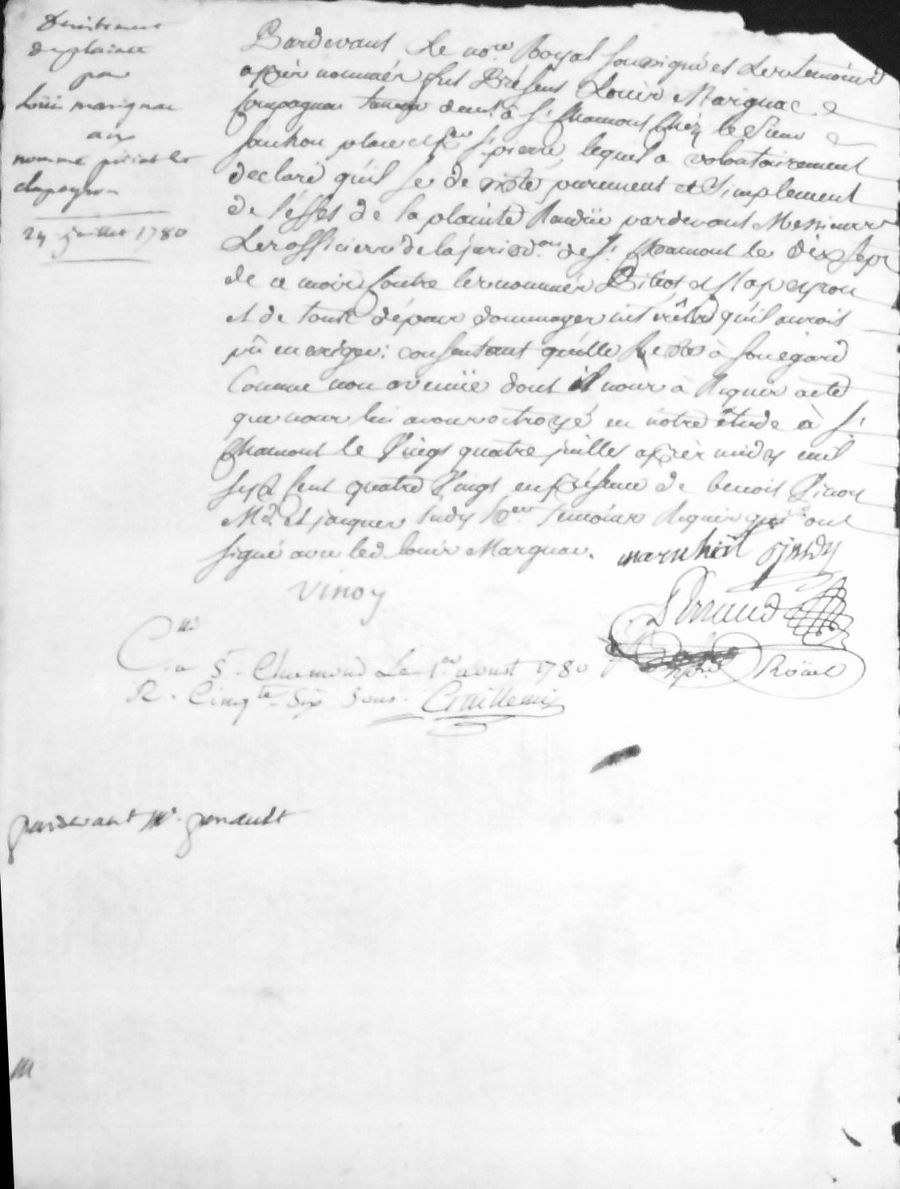 Desistement
de plainte
par
Loüis marignac
aux
nommé pitiot et
chapeyron
24 juillet 1780
Pardevant Le nore Royal soussigné et Les temoins
après nommés fut Présent Louis Marignac
Compagnon demt à St Chamont chéz le Sieur
place St pierre, lequel a volontairement
declaré qu'il se de purement et Simplement
de l'éffet de la plainte Randüe pardevant Messieurs
Les officiers de la jurisdon de St Chamont le dix sept
de ce mois Contre les nommés Pitiot et Chapeyron
et de tout dépans dommages interêts qu'il auroit
pû en exiger; consentant qu'elle Reste à son égard
Comme non avenüe dont il nous à Requis acte
que nous lui avons octroyé en notre étude à St
Chamont le Vingt quatre juillet après midy mil
sept Cent quatre Vingt en présence de benoit Vinoy
Md. et jacques Temoins Requis qui ont
signé avec led. Louis Marignac.
Vinoy
Royal
a St Chamond Le 1er aoust 1780
R. Cinqte Six Sous.
pardevant Me